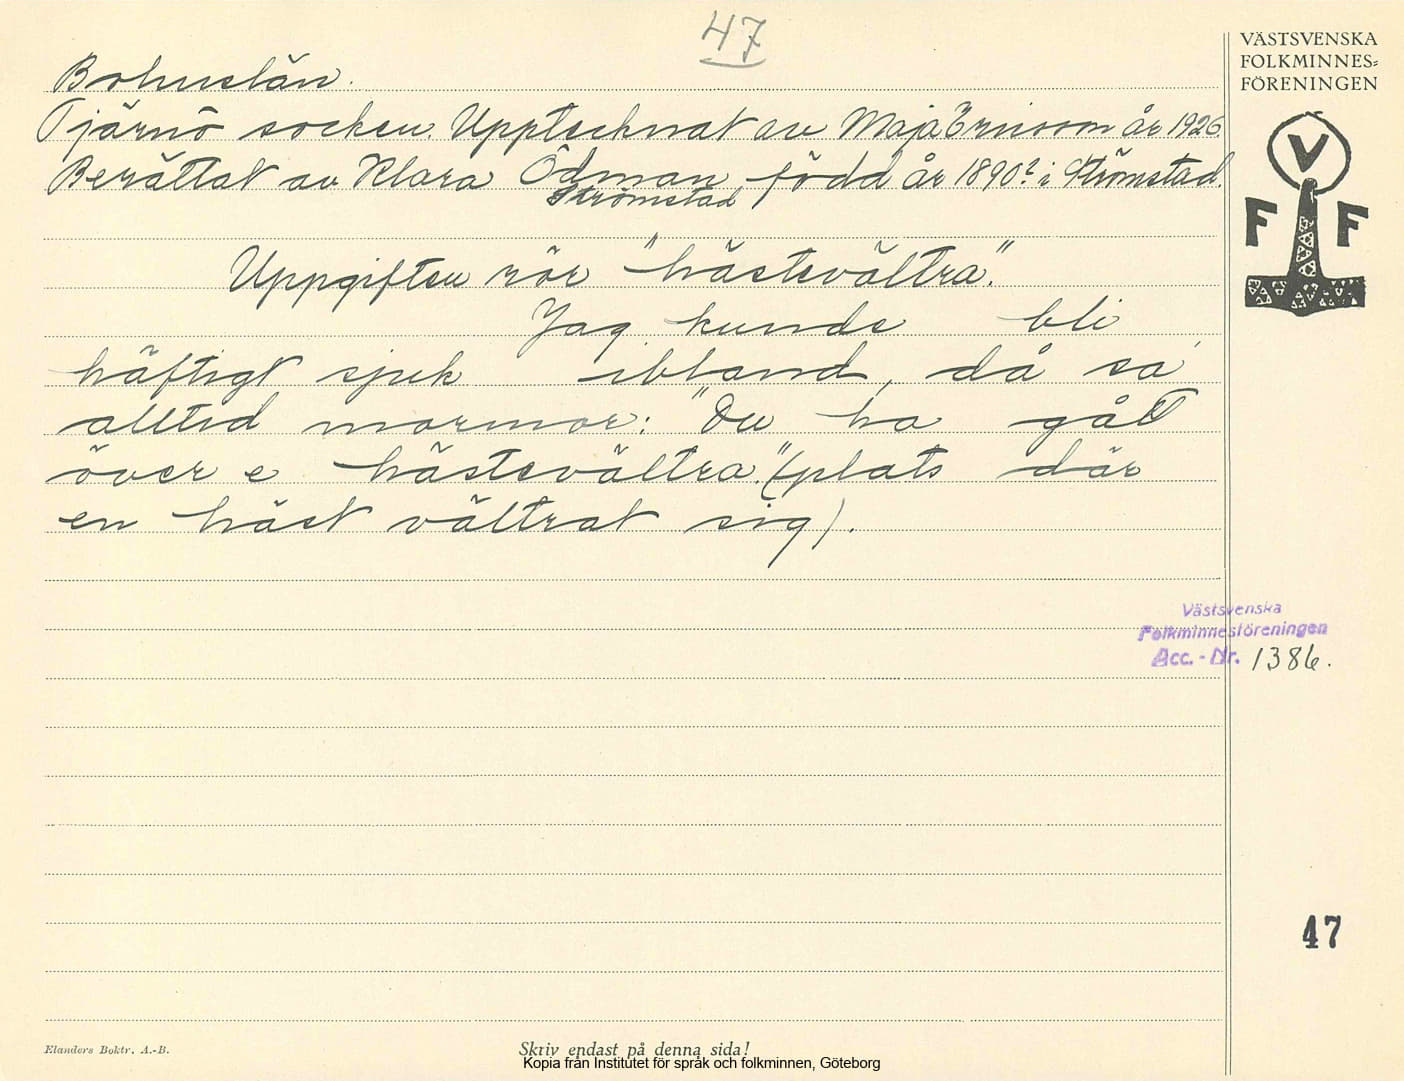 47
VÄSTSVENSKA
FOLKMINNES=
FÖRENINGEN
V
F F
Bohuslän.
Tjärnö socken. Upptecknat av Maja Ericson år 1926
Berättat av Klara Ödman, född år 1890? i Strömstad.
Strömstad
Uppgiften rör "hästevältra".
Jag kunde bli
häftigt sjuk ibland, då sa'
alltid mormor: "Du ha gåt
över e hästevältra." (plats där
en häst vältrat sig).
Västsvenska
Folkminnesföreningen
Acc.-Nr. 1386.
47
Elanders Boktr. A.-B.
Skriv endast på denna sida!
Kopia från Institutet för språk och folkminnen, Göteborg